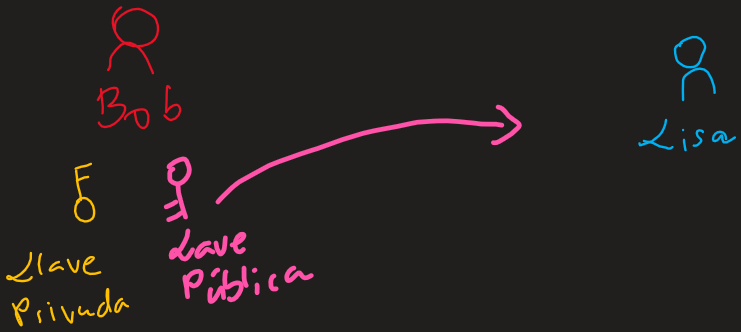 Bob
Lisa
Llave
Privada
Lave
Pública